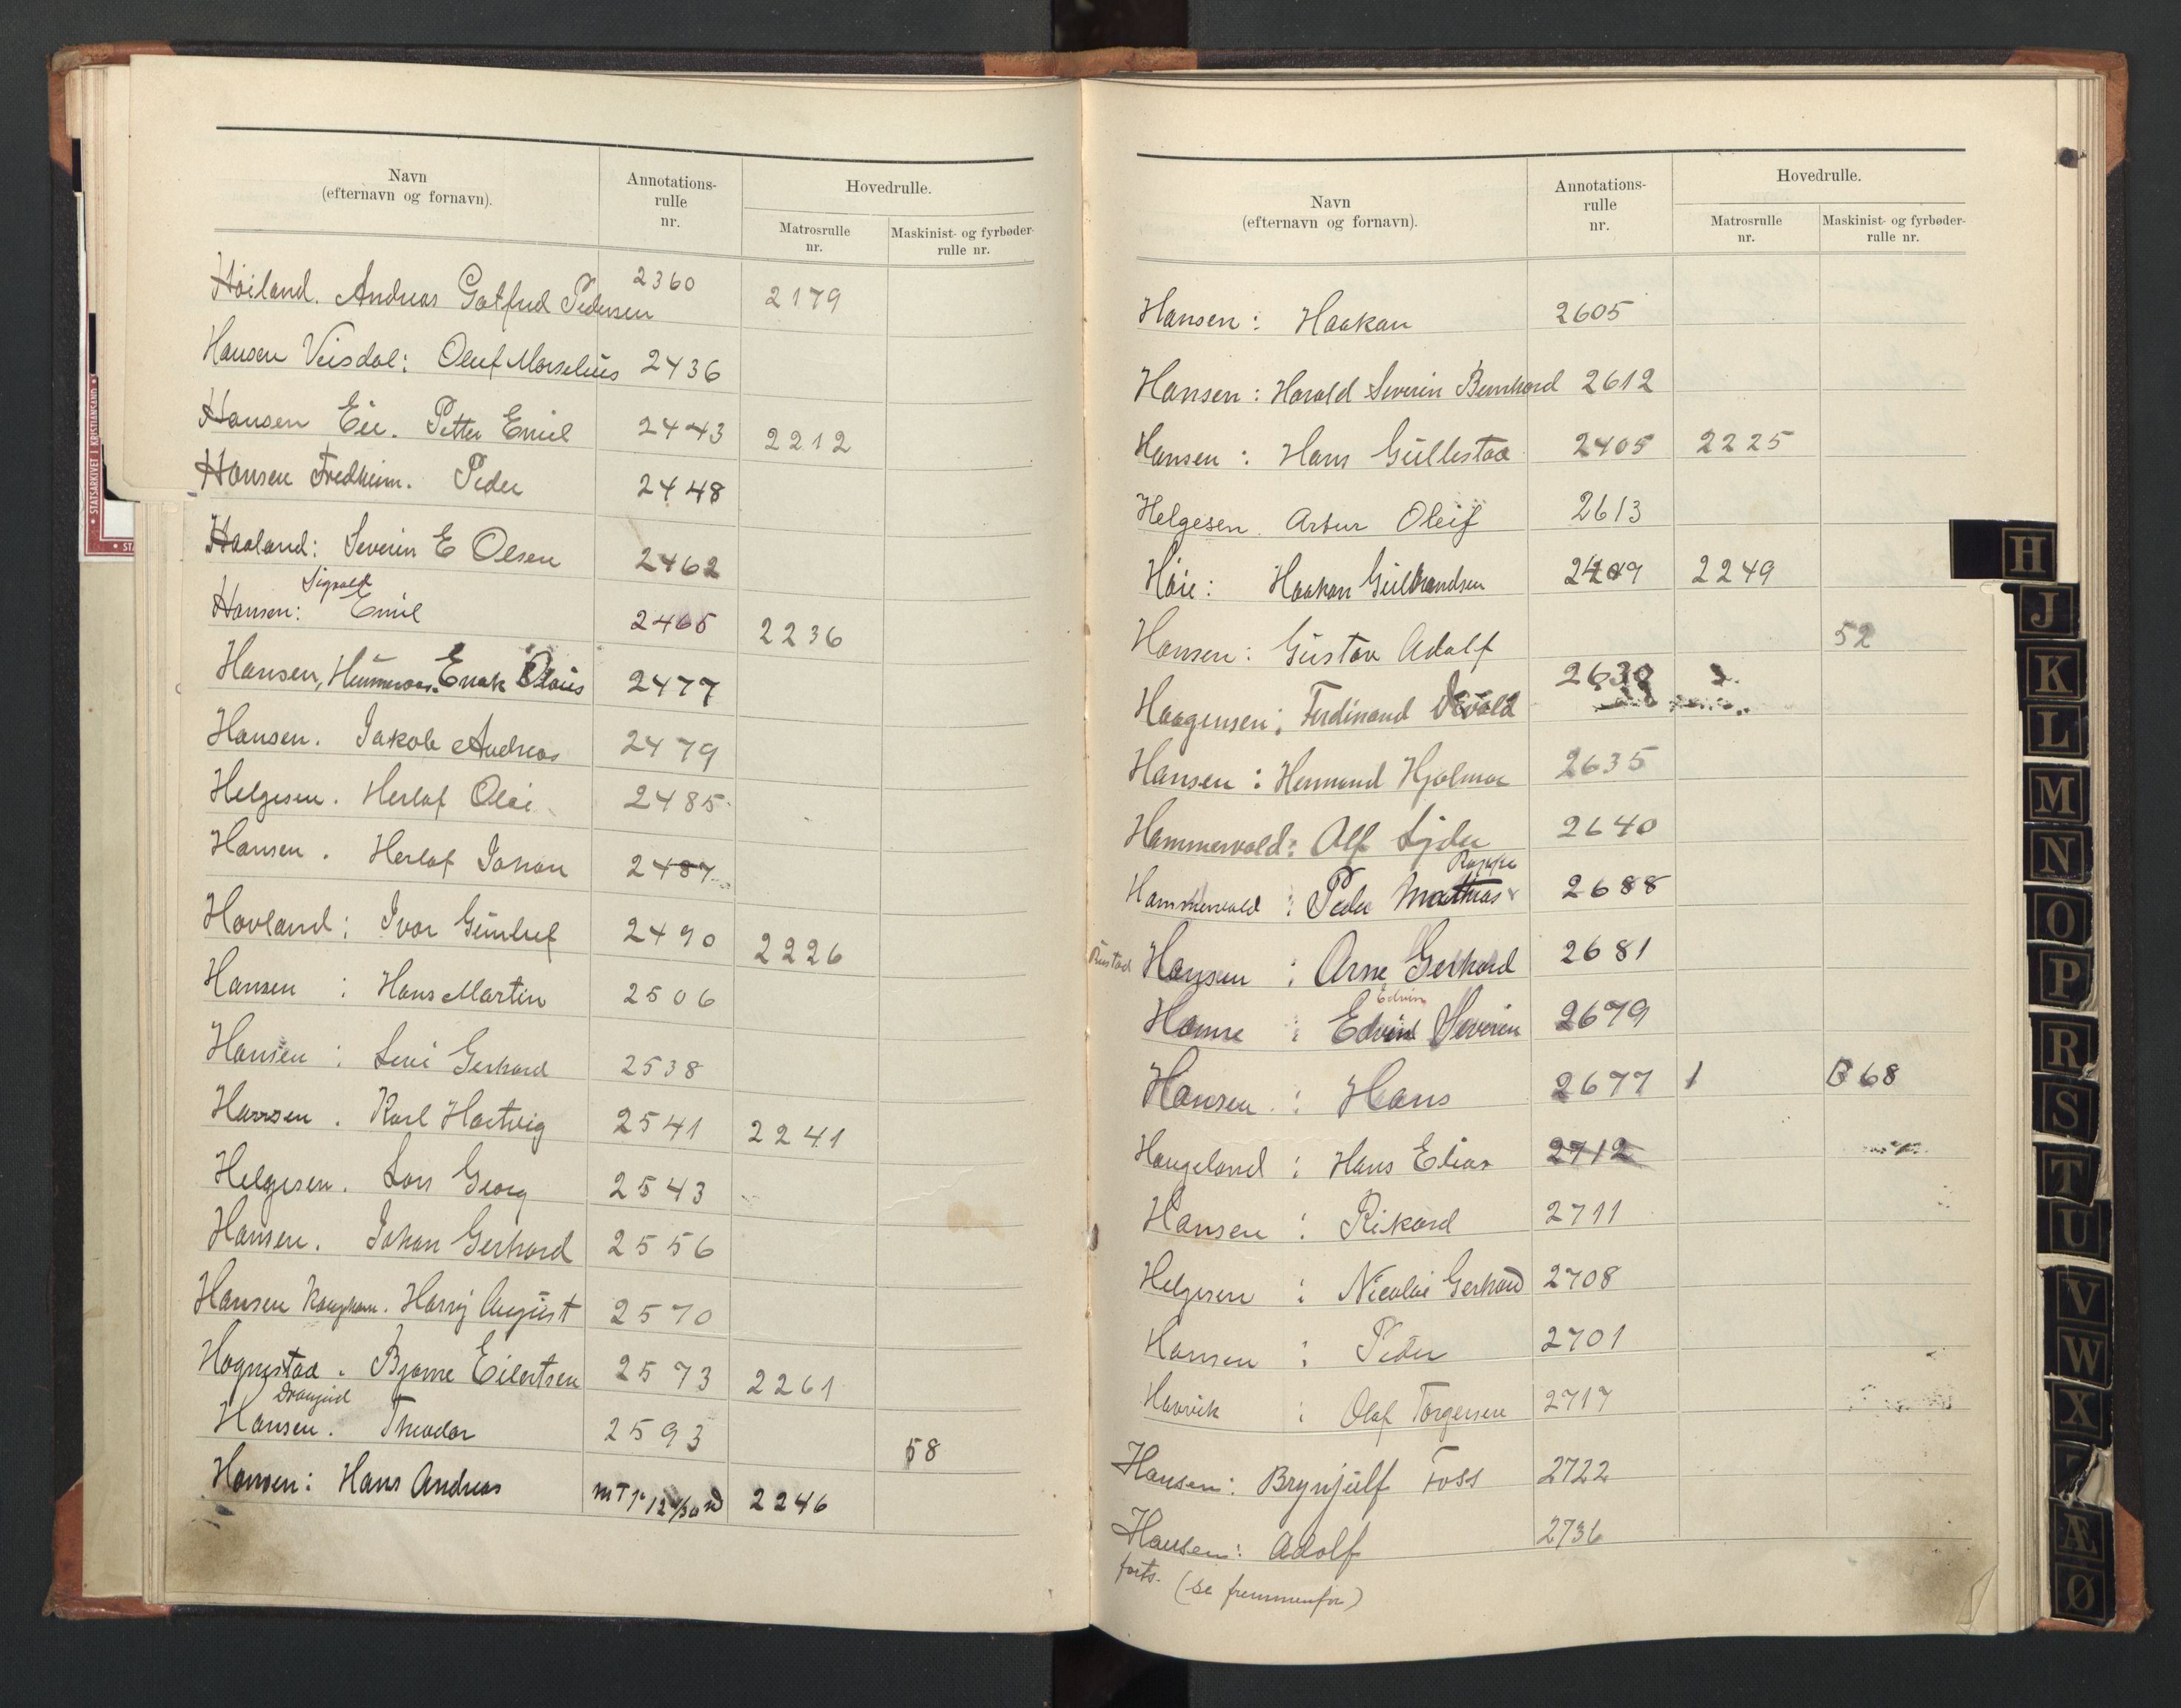 Navn
(efternavn og fornavn).
Annotations-
rulle
nr.
Hovedrulle.
Matrosrulle
nr.
Maskinist- og fyrbøder-
rulle nr.
Höiland. Andreas Gotfred Pedersen 2360 2179
Hansen Veisdal: Oluf Marselius 2436
Hansen Eie. Petter Emil 2443 2212
Hansen Fredheim. Peder 2448
Haaland: Severin E Olsen 2462
Sigvald
Hansen: Emil 2465 2236
Hansen, Enok Olaus 2477
Hansen. Jakob Andreas 2479
Helgesen. Herlof Olai 2485
Hansen. Herlof Johan 2487
Hovland: Ivar Gunluf 2490 2226
Hansen : Hans Martin 2506
Hansen : Levi Gerhard 2538
Hansen. Karl Hartvig 2541 2241
Helgesen. Lars Georg 2543
Hansen. Johan Gerhard 2556
Hansen Harry August 2570
Hognestad. Bjarne Eilertsen 2573 2261
Drangeid
Hansen. Theodor 2593 58
Hansen: Hans Andreas 2246
Navn
(efternavn og fornavn).
Annotations-
rulle
nr.
Hovedrulle.
Matrosrulle
nr.
Maskinist- og fyrbøder-
rulle nr.
Hansen: Haakon 2605
Hansen: Harald Severin Bernhard 2612
Hansen: Hans Gullestad 2405 2225
Helgesen. Artur Oleif 2613
Höie: Haakon Gulbrandsen 2249
Hansen: Gustav Adolf 52
Haagensen: Ferdinand 2630
Hansen: Hermand Hjalmar 2635
Hammervold: Alf Lyder 2640
Hammervold: Peder Mathias 2688
Rustad Hansen : Arne Gerhard 2681
Edvin
Homme : Severin 2679
Hansen : Hans 2677 1 B 68
Haugeland : Hans Elias 2712
Hansen : Rikard 2711
Helgesen : Nicolai Gerhard 2708
Hansen : Peder 2701
Havvik : Olaf Torgersen 2717
Hansen: Brynjulf Foss 2722
Hansen: Adolf 2736
forts. (se fremmenfor)
H
J
K
L
M
N
O
P
R
S
T
U
V
W
X
Æ
Ø
STATSARKIVET I KRISTIANSAND